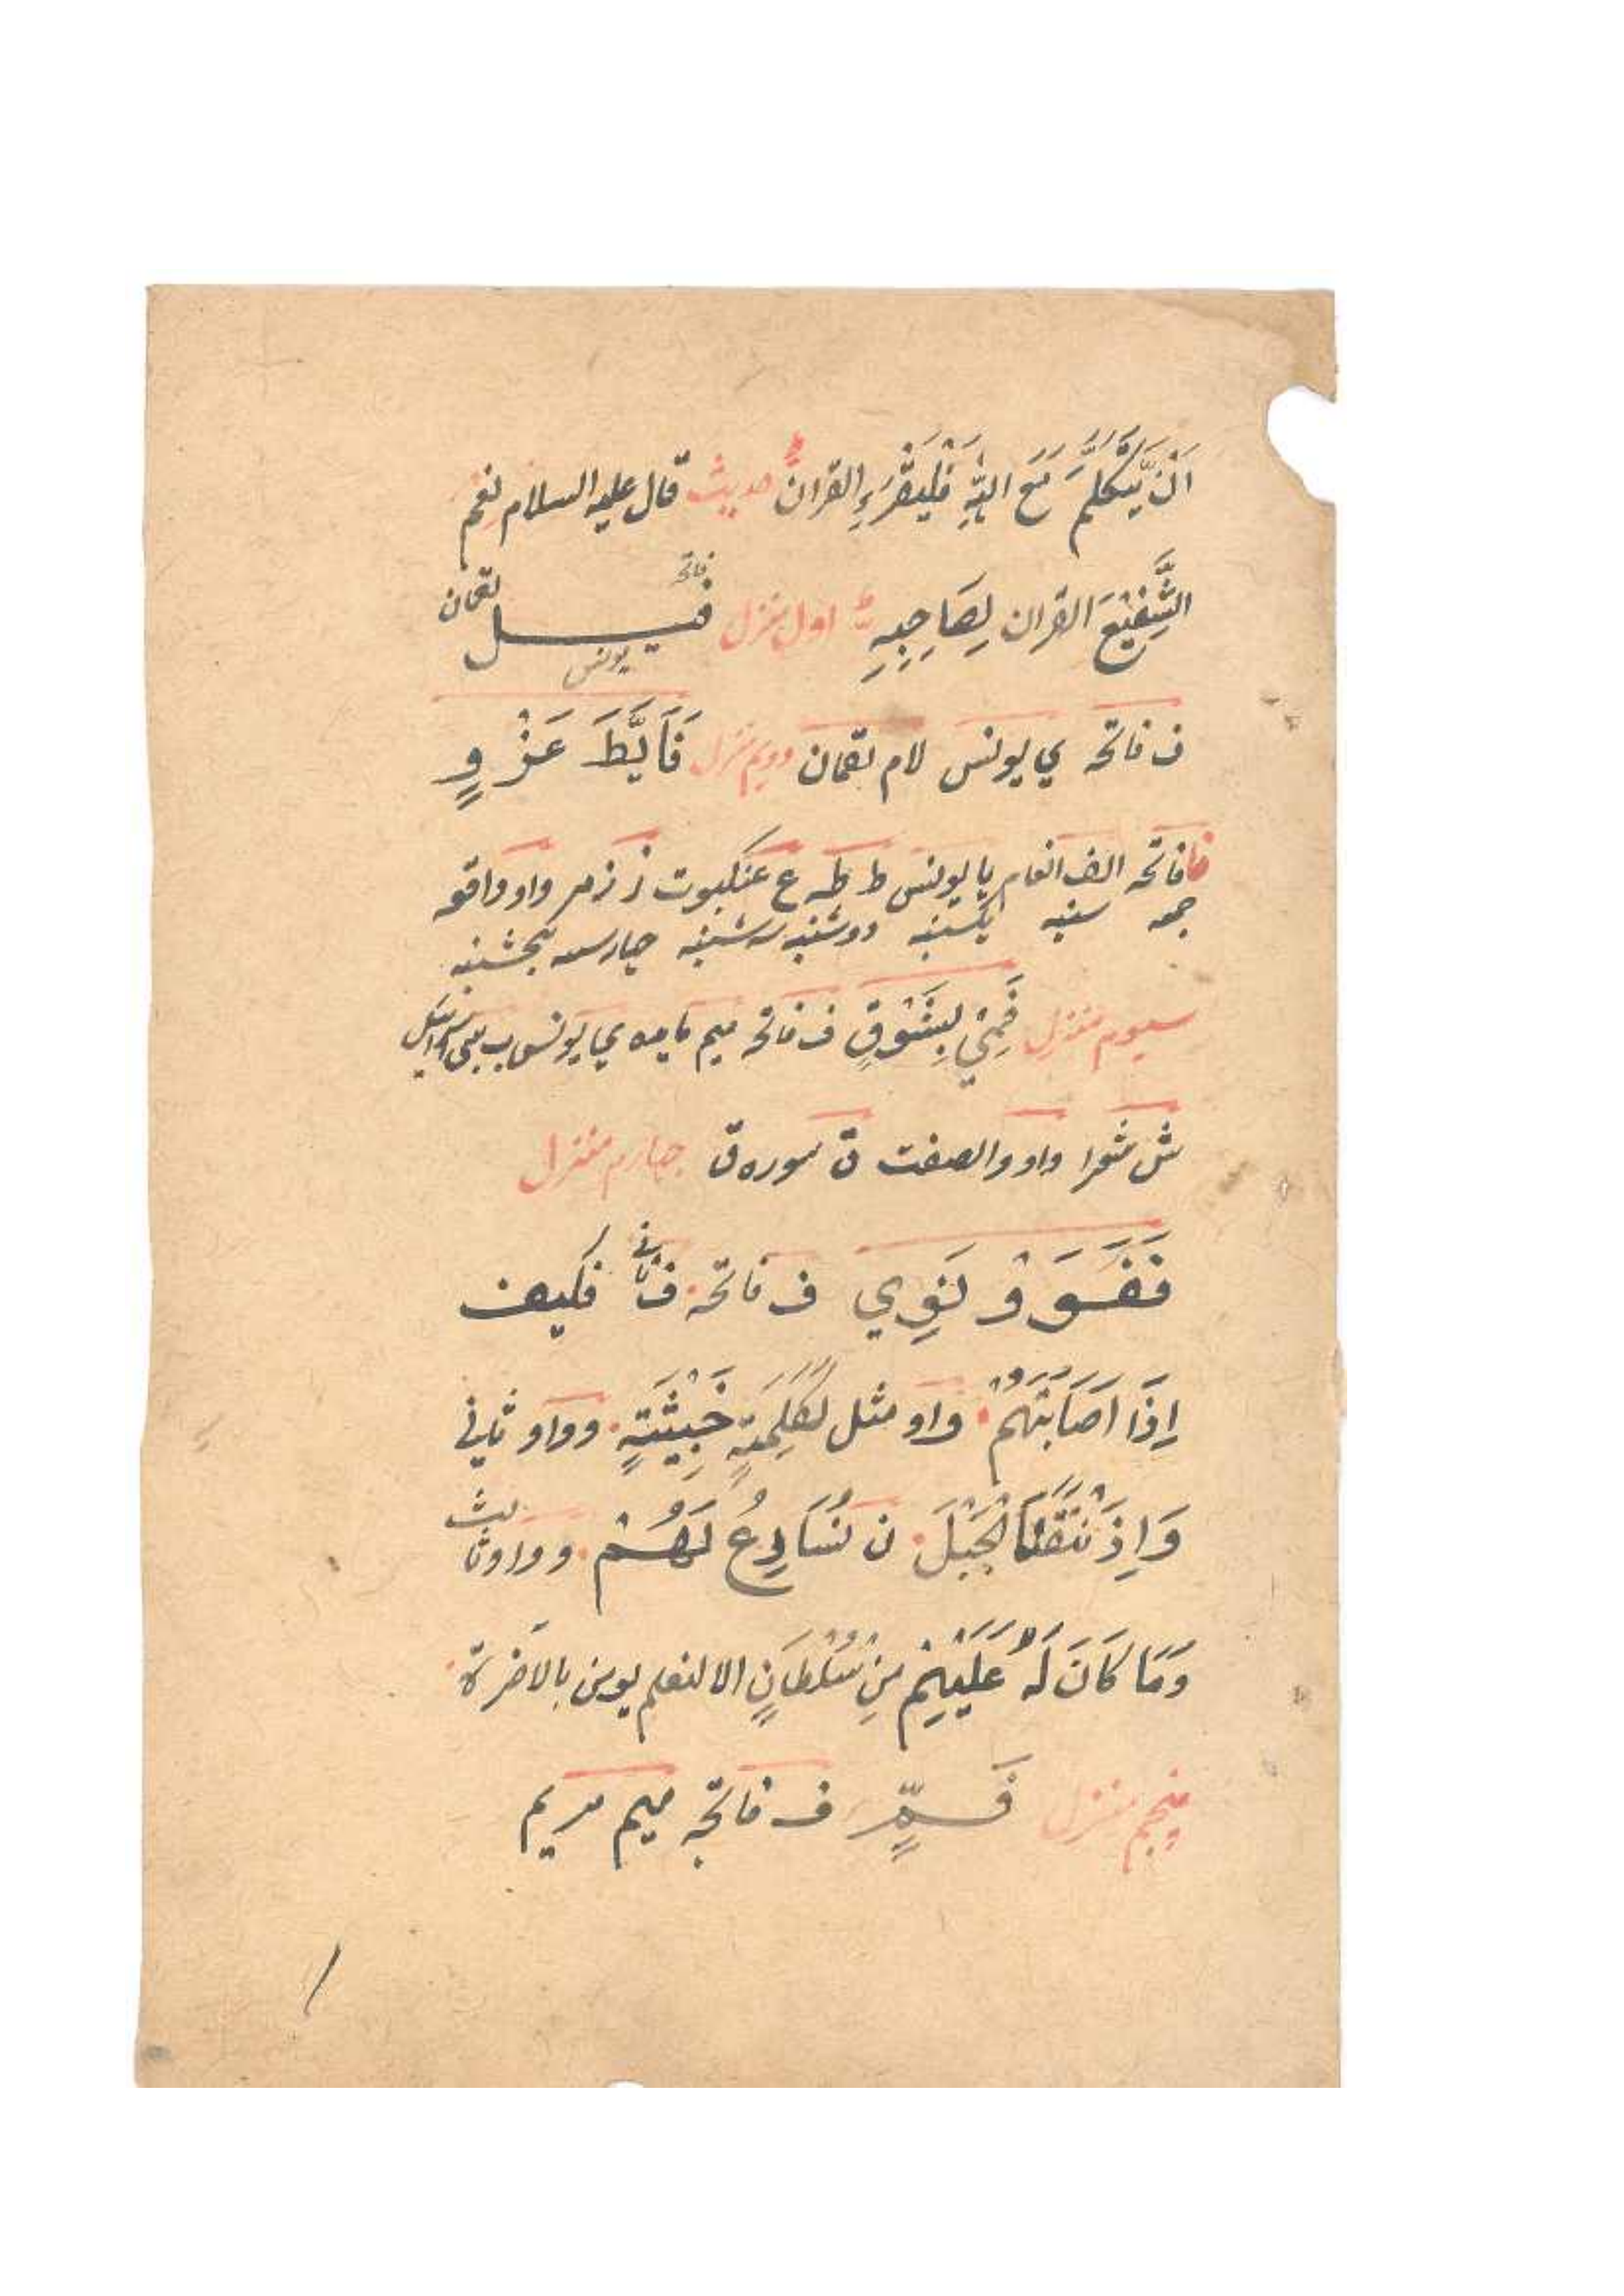 اَنْ يَّتَكَلَّمَ مَعَ اللّٰهِ فَلْيَقْرَءِ القرانَ حديث قال عليه السلام نِعْمَ
الشَّفِيْعَ القران لِصَاحِبِهِ اول منزل فيل فاتحه يونس لقمان
ف فاتحه ي يونس لام لقمان دويم منزل فَاَيَّطَ عَزْوٍ
فا فاتحه الف انعام يا يونس ط طه ع عنكبوت ز زمر واو واقعه
جمعه شنبه يكشنبه دوشنبه سه شنبه چهارسه پنجشنبه
سيوم منزل فَمِيْ بِشَوْقٍ ف فاتحه ميم مايده ي يونس ب بنى اسرائيل
ش شعرا واو والصفت ق سوره ق چهارم منزل
فَفَسَوْ لَنوِي ف فاتحه ف ثانى فكيف
اِذَا اَصَابَتْهُمْ واو مثل كَلِمَةٍ خَبِيْثَةٍ وواو ثاني
وَاِذْ نَتَقْنَا الْجَبَلَ ن نُسَارِعُ لَهُمْ وواو ثالث
وَمَا كَانَ لَهُ عَلَيْهِمْ مِنْ سُلْطَانٍ الا لنعلم يومن بالاخرة
پنجم منزل فَمٍّ ف فاتحه ميم مريم